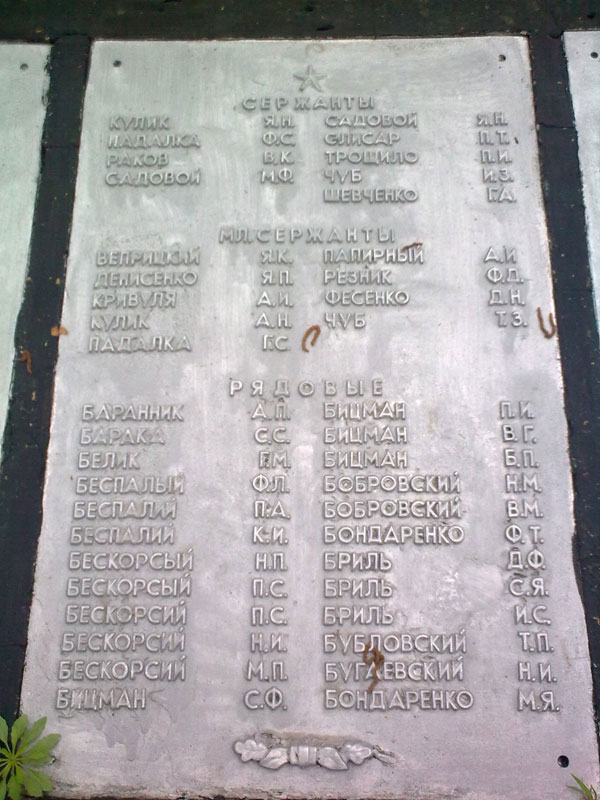 СЕРЖАНТЫ
КУЛИК Я.Н. САДОВОЙ Я.Н.
ПАДАЛКА Ф.С. ЕЛИСАР П.Т.
РАКОВ В.К. ТРОЩИЛО П.И.
САДОВОЙ М.Ф. ЧУБ И.З.
ШЕВЧЕНКО Г.А.
МЛ.СЕРЖАНТЫ
ВЕПРИЦКИЙ Я.К. ПАПИРНЫЙ А.И
ДЕНИСЕНКО Я.П. РЕЗНИК Ф.Д.
КРИВУЛЯ А.И. ФЕСЕНКО Д.Н.
КУЛИК А.Н. ЧУБ Т.З.
ПАДАЛКА Г.С
РЯДОВЫЕ
БАРАННИК А.П. БИЦМАН П.И.
БАРАКА С.С. БИЦМАН В.Г.
БЕЛИК Г.М. БИЦМАН Б.П.
БЕСПАЛЫЙ Ф.Л. БОБРОВСКИЙ Н.М.
БЕСПАЛИЙ П.А. БОБРОВСКИЙ В.М.
БЕСПАЛИЙ К.И. БОНДАРЕНКО Ф.Т.
БЕСКОРСЫЙ Н.П. БРИЛЬ Д.Ф.
БЕСКОРСЫЙ П.С. БРИЛЬ С.Я.
БЕСКОРСИЙ П.С. БРИЛЬ И.С.
БЕСКОРСИЙ Н.И. БУБЛОВСКИЙ Т.П.
БЕСКОРСИЙ М.П. БУГАЕВСКИЙ Н.И.
БИЦМАН С.Ф. БОНДАРЕНКО М.Я.